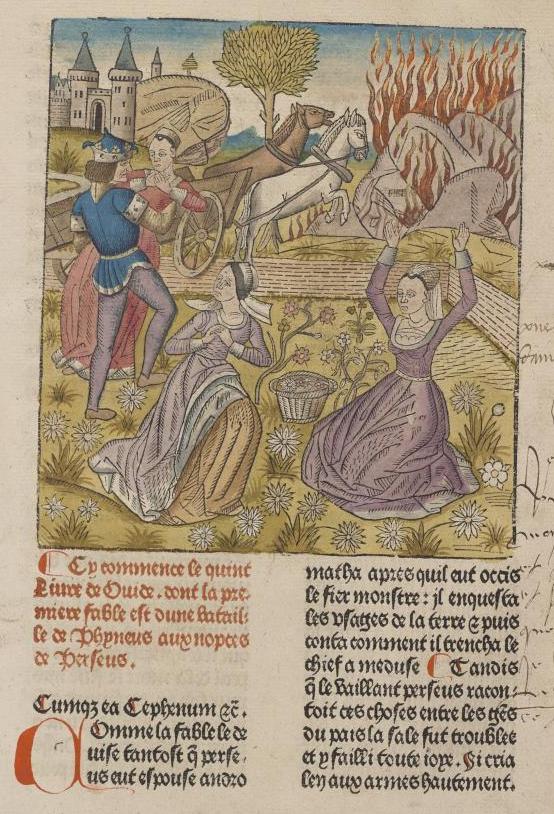 Cy commence le quint
Liure de Ouide. dont la pre-
miere fable est dune batail-
le de Phyneus aux nopces
de Perseus.
Cumqꝫ ea Cephenum ⁊c̄.
Comme la fable le de
uise tantost q̄ perse-
us eut espouse andro
matha apres quil eut occis
le fier monstre: il enquesta
les vsages de la terre ⁊ puis
conta comment il trencha le
chief a meduse Tandis
q̄ le vaillant perseus racon-
toit ces choses entre les gēs
du pais la sale fut troublee
et y failli toute ioye. Si cria
len aux armes hautement.